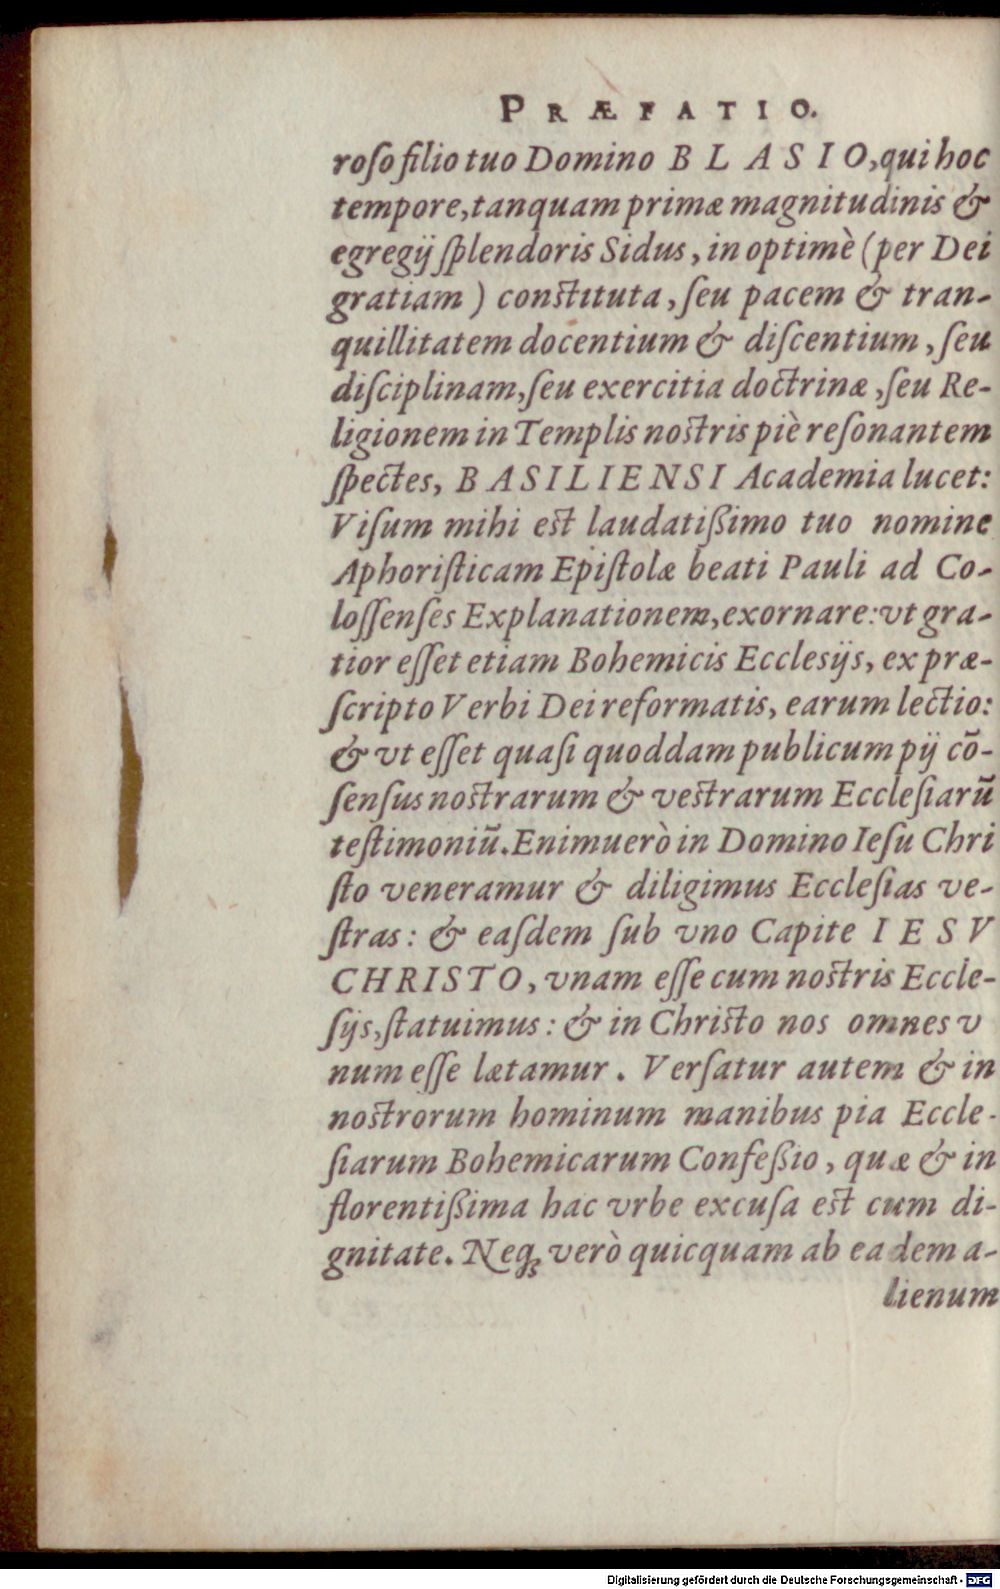 PRÆFATIO.
roſo filio tuo Domino BLASIO, qui hoc
tempore, tanquam primæ magnitudinis &
egregij ſplendoris Sidus, in optimè (per Dei
gratiam) conſtituta, ſeu pacem & tran-
quillitatem docentium & diſcentium, ſeu
diſciplinam, ſeu exercitia doctrinæ, ſeu Re-
ligionem in Templis noſtris piè reſonantem
ſpectes, BASILIENSI Academia lucet:
Viſum mihi eſt laudatißimo tuo nomine
Aphoriſticam Epiſtolæ beati Pauli ad Co-
loſſenſes Explanationem, exornare: vt gra-
tior eſſet etiam Bohemicis Ecclesijs, ex præ-
ſcripto Verbi Dei reformatis, earum lectio:
& vt eſſet quaſi quoddam publicum pij cõ-
ſenſus noſtrarum & veſtrarum Eccleſiarũ
teſtimoniũ. Enimuerò in Domino Ieſu Chri
ſto veneramur & diligimus Eccleſias ve-
ſtras: & eaſdem ſub vno Capite IESV
CHRISTO, vnam eſſe cum noſtris Eccle-
ſijs, ſtatuimus: & in Chriſto nos omnes v
num eſſe lætamur. Verſatur autem & in
noſtrorum hominum manibus pia Eccle-
ſiarum Bohemicarum Confeßio, quæ & in
florentißima hac vrbe excuſa eſt cum di-
gnitate. Neq; verò quicquam ab eadem a-
lienum
Digitalisierung gefördert durch die Deutsche Forschungsgemeinschaft - DFG